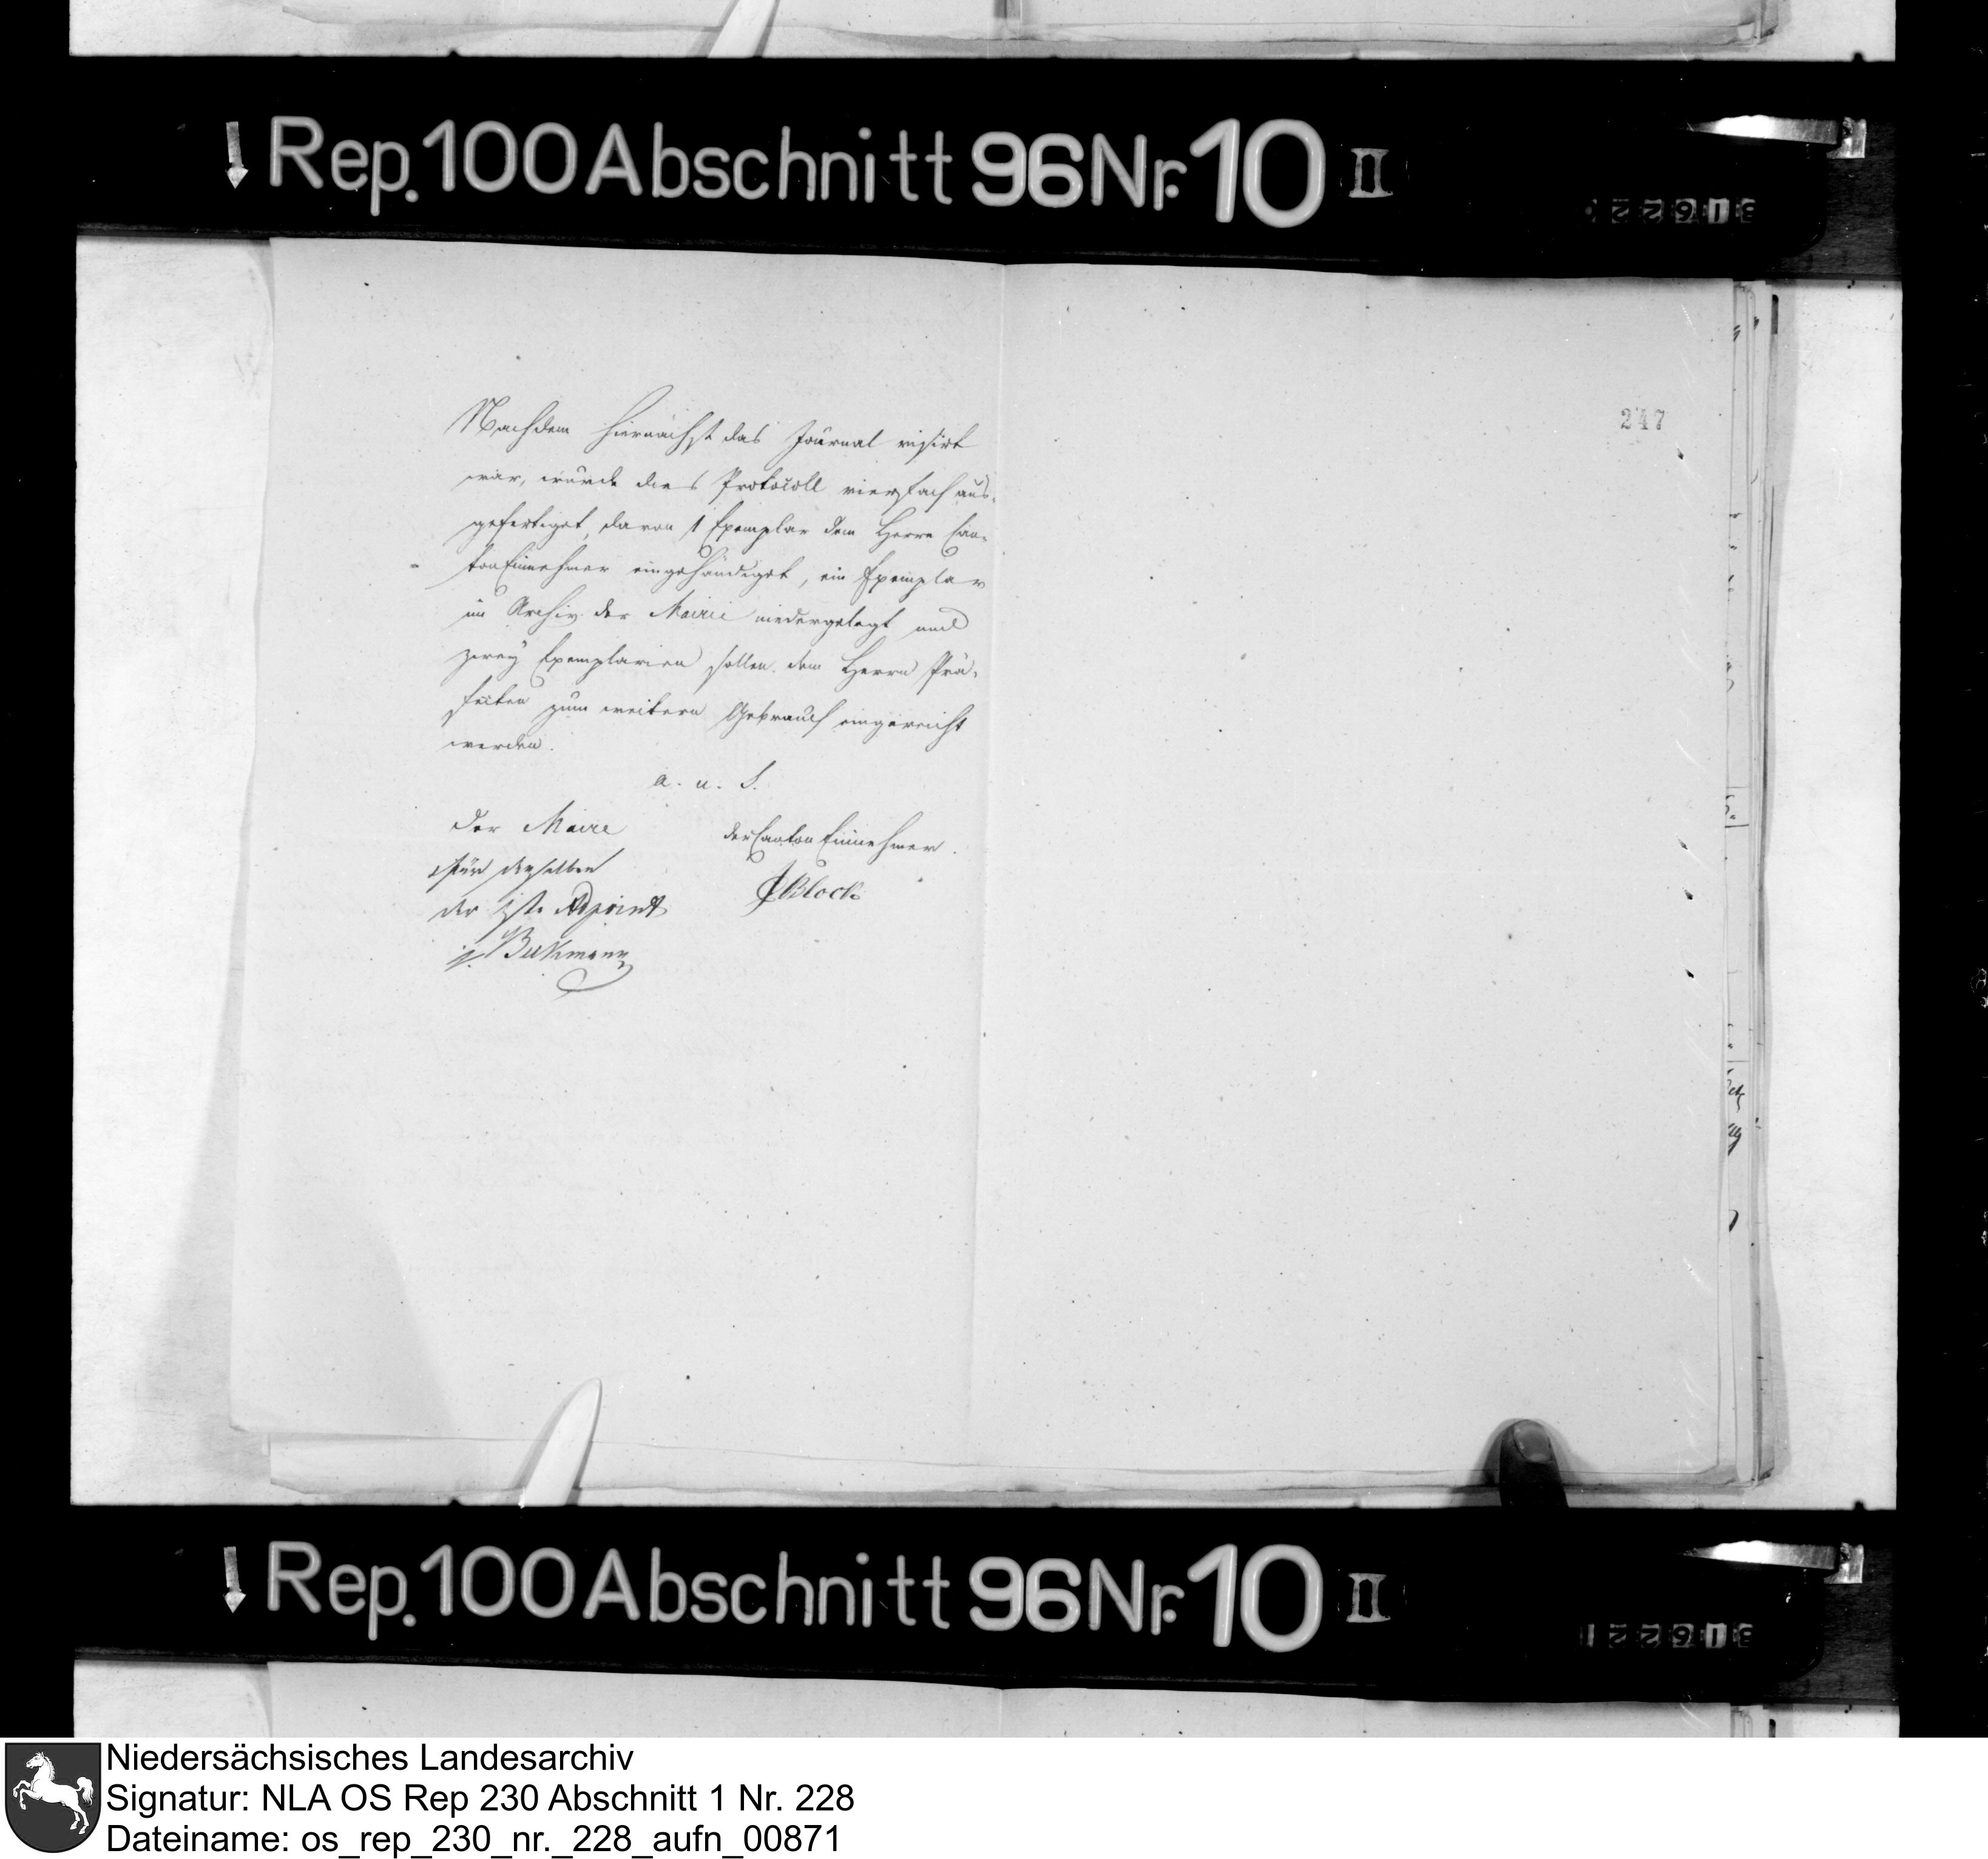 Rep. 100 Abschnitt 96 Nr. 10 II
31622
247
Nachdem hiernächst das Journal visirt
war, wurde dies Protocoll vierfach aus-
gefertiget, davon 1 Exemplar dem Herrn Can-
ton Einnehmer eingehändiget, ein Exemplar
im Archiv der Mairie niedergelegt und
zwey Exemplarien sollen dem Herrn Prä-
fecten zum weitern Gebrauch eingereicht
werden.
a. u. S.
Der Maire
für denselben
der 1ste Adjoint
Beckmann
der Canton Einnehmer.
Block
Rep. 100 Abschnitt 96 Nr. 10 II
Niedersächsisches Landesarchiv
Signatur: NLA OS Rep 230 Abschnitt 1 Nr. 228
Dateiname: os_rep_230_nr._228_aufn_00871